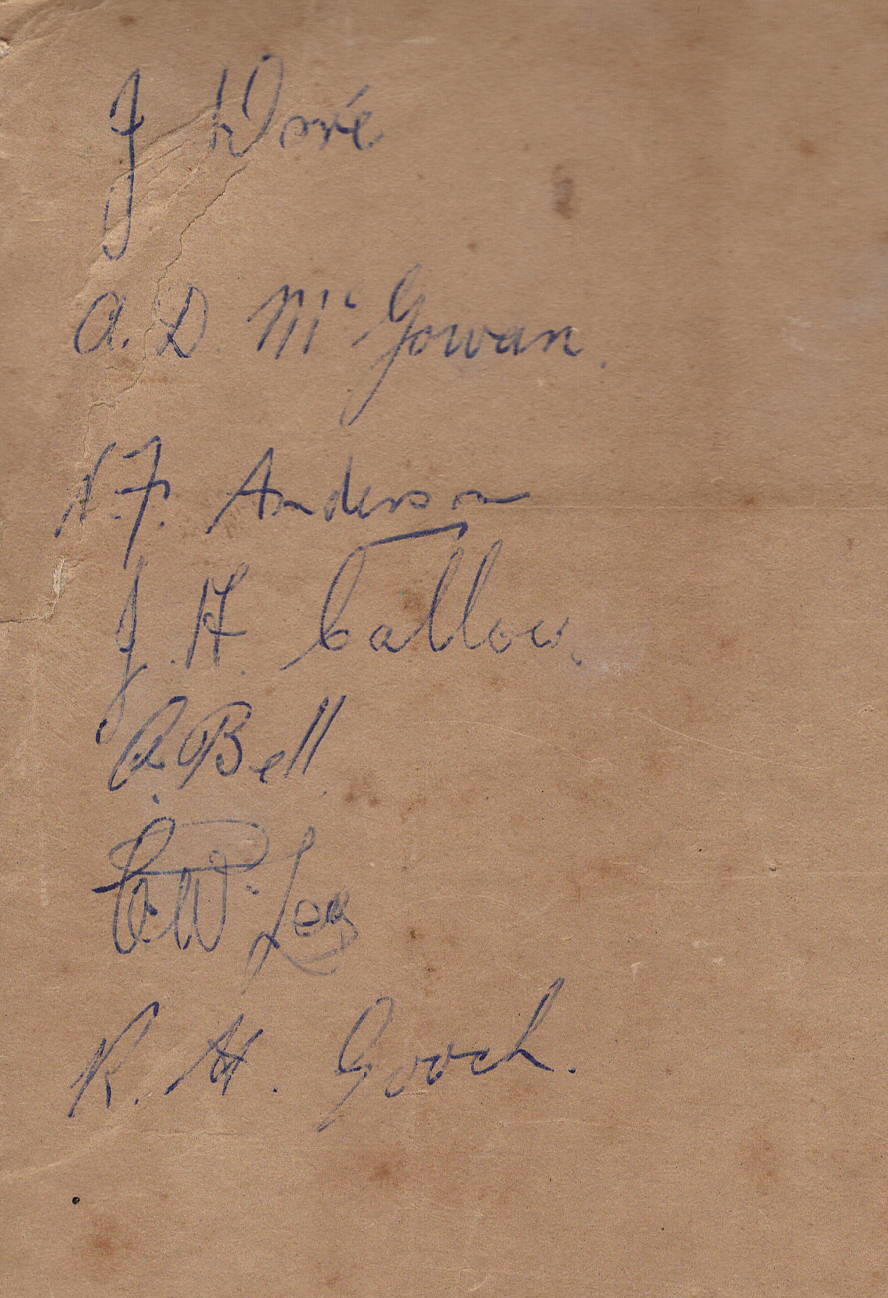 J
A. D. McGowan.
N. F. Anderson
J. H. Callow.
A. Bell
Lee
R. H. Gooch.